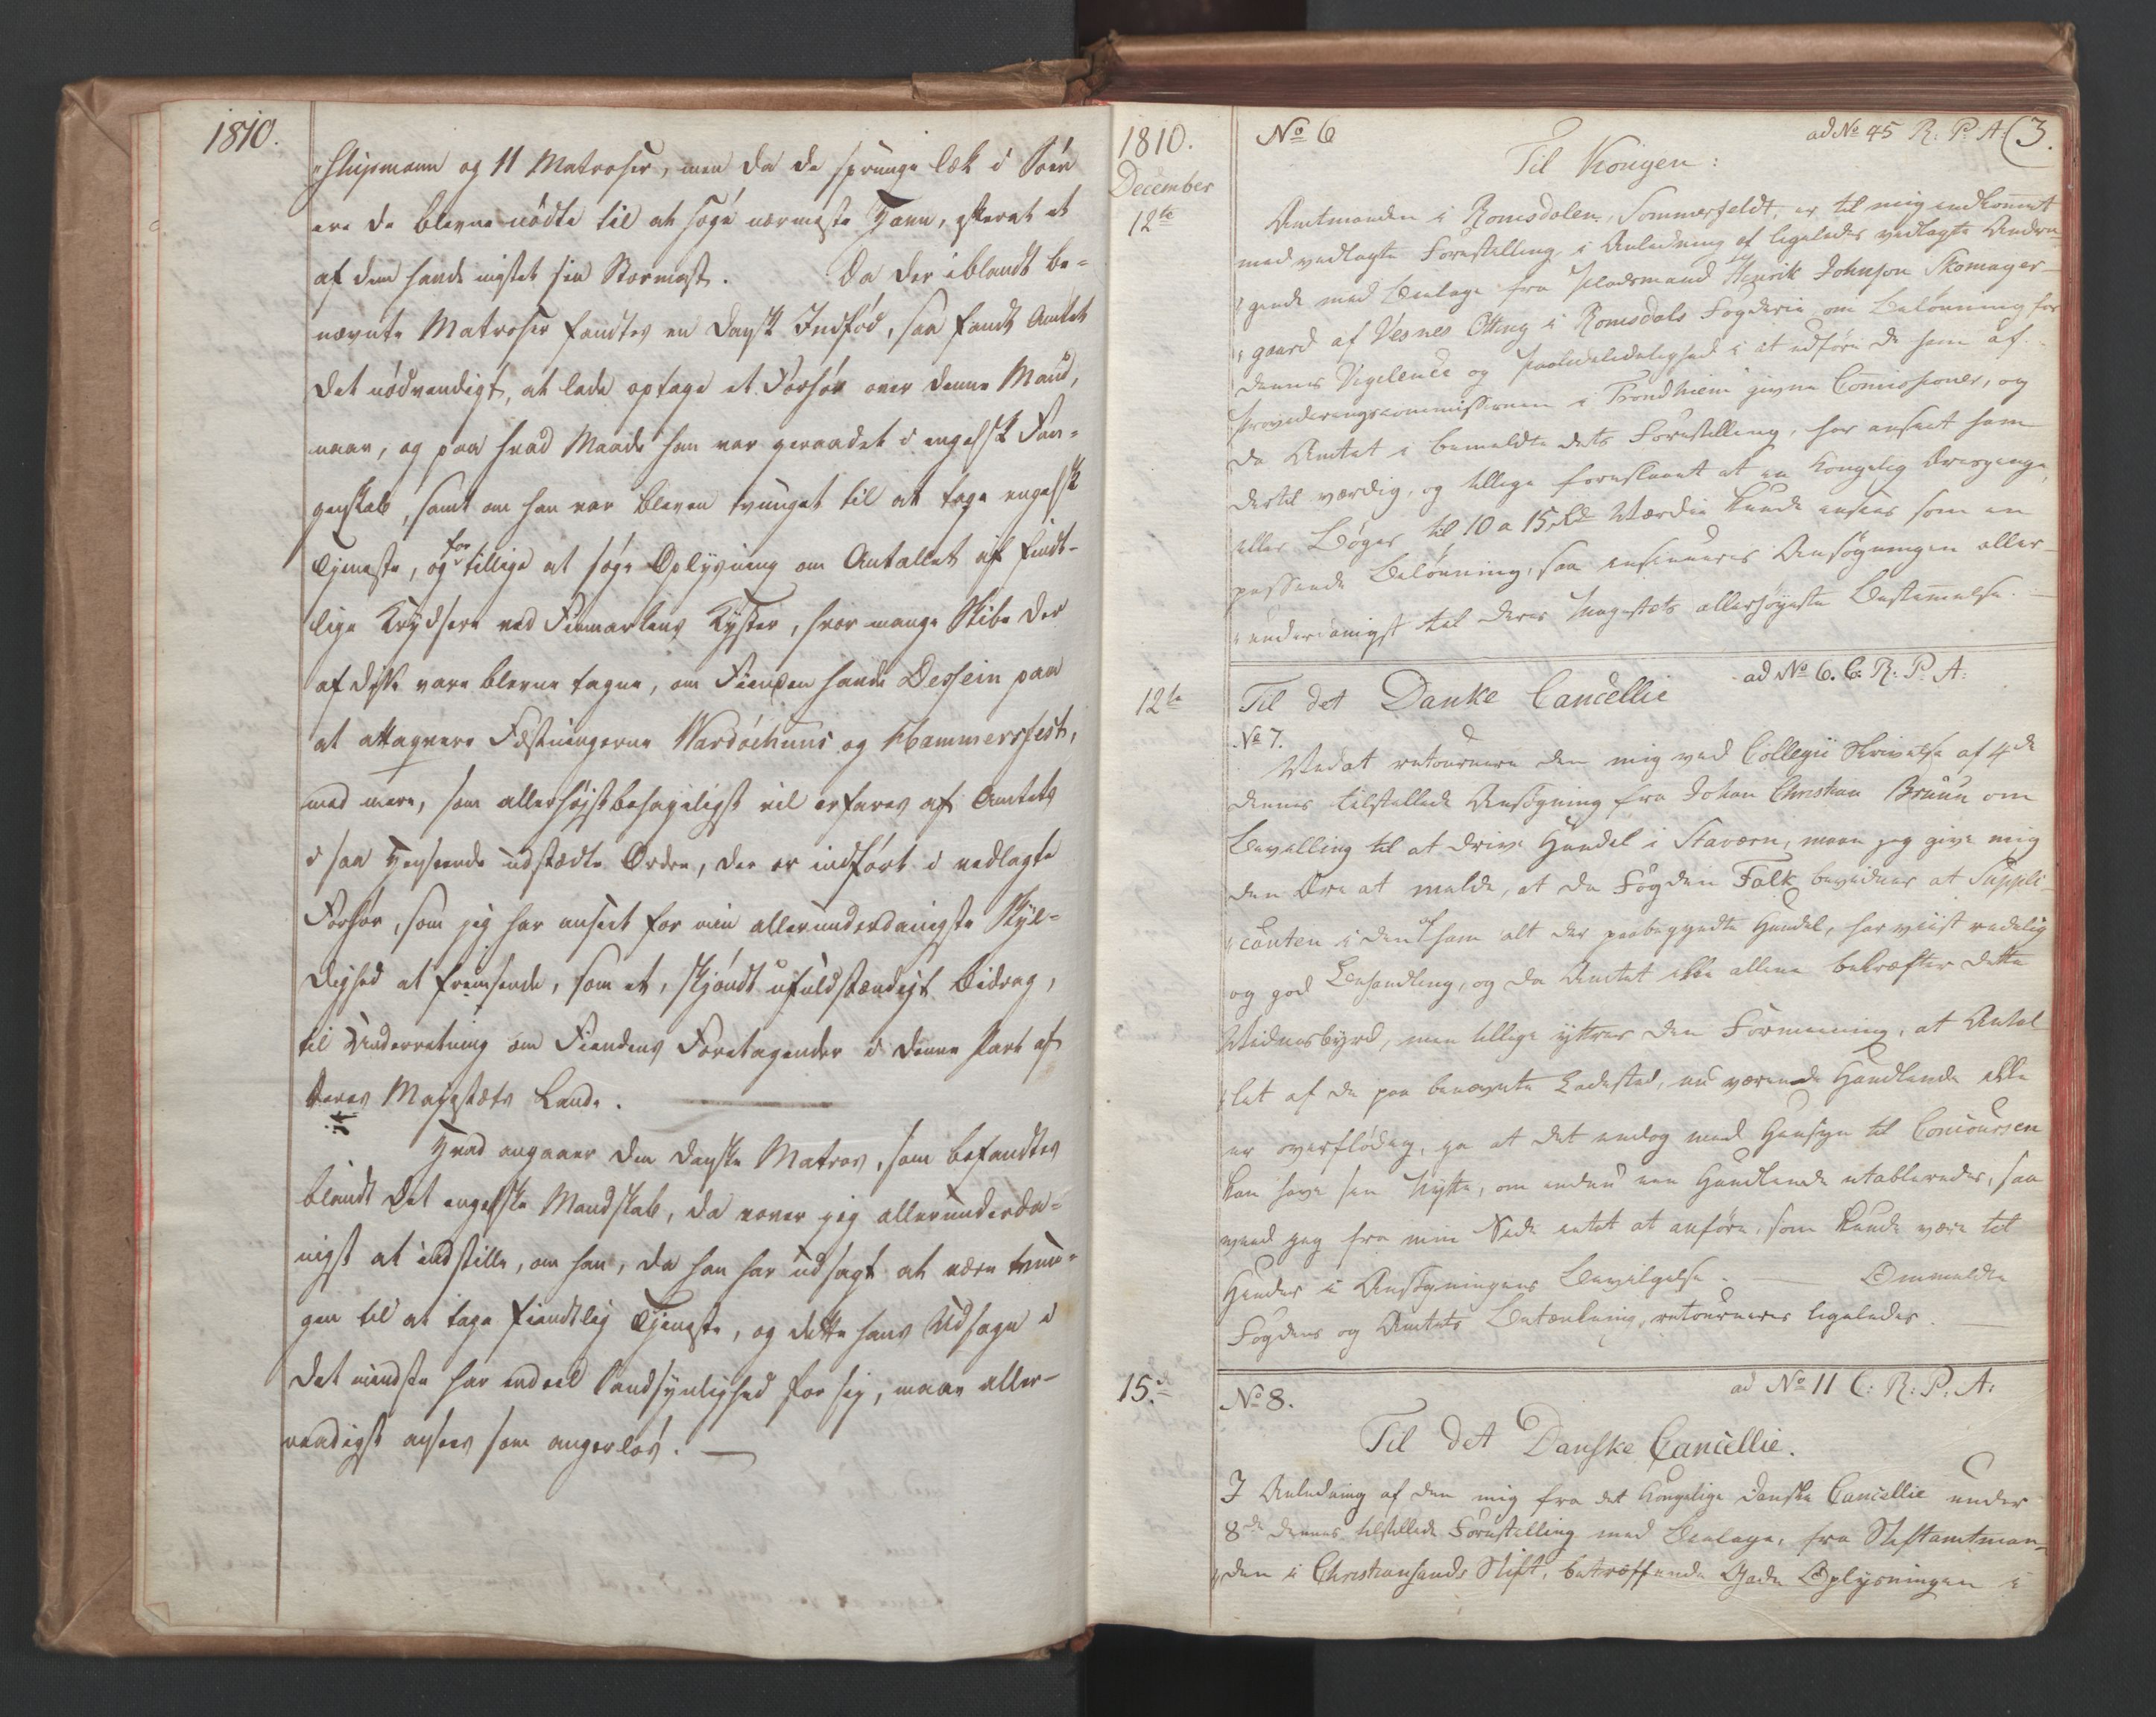 1810.
"Skipmann og 11 Matroser, men da de sprunge læk i Søen
ere de blevne nødte til at søge nærmeste Havn, efterat et
af dem havde mistet sin Stormast. Da der iblandt be-
nævnte Matroser fandtes en dansk Indfød, saa fandt Amtet
det nødvendigt, at lade optage et Forhør over denne Mand,
naar, og paa hvad Maade han var geraadet i engelsk Fan-
genskab, samt om han var bleven tvunget til at tage engelsk
Tjeneste, og for tillige at søge Oplysning om Antallet af fiendt-
lige Krydsere ved Finmarkens Kyster, hvor mange Skibe der
af disse vare blevne tagne, om Fienden havde Dessein paa
at attaqvere Fæstningerne Wardøehuus og Hammersfest,
med mere, som allerhøjstbehageligst vil erfares af Amtets
i saa Henseende udstædte Ordre, der er indført i vedlagte
Forhør, som jeg har anseet for min allerunderdanigste Skyl-
dighed at fremsende, som et, skjøndt ufuldstændigt Bidrag,
til Underretning om Fiendens Foretagender i denne Part af
Deres Majestæts Lande.
Hvad angaaer den danske Matros, som befandtes
blandt det engelske Mandskab, da vover jeg allerunderda-
nigst at indstille, om han, da han har udsagt at være tvun-
gen til at tage fiendtlig Tjeneste, og dette hans Udsagn i
det mindste har endeel Sandsynlighed for sig, maae aller-
naadigst ansees som angerløs.
1810.
December
12te
No 6
ad No 45 R: P: A: (3.
Til Kongen:
Amtmanden i Romsdalen, Sommerfeldt, er til mig indkommet
med vedlagte Forestilling, i Anledning af ligeledes vedlagte Andra-
gende med Beelage fra Pladsmand Henrik Johnson Skomager-
gaard af Vesnes Otting i Romsdals Fogderie om Belønning for
dennes Vigilence og Paalidelidelighed i at udføre de ham af
Provideringscommissionen i Trondhiem givne Comissioner, og
da Amtet i bemeldte dets Forestilling, har anseet ham
dertil værdig, og tillige foreslaaet at en Kongelig Ærespenge,
eller Bøger til 10 a 15 Rd Værdie kunde ansees som en
passende Belønning, saa insinueres Ansøgningen aller-
underdanigst til Deres Majestæts allerhøyeste Bestemmelse.
12te
ad No 6. C: R: P: A:
Til det Danke Cancellie
No 7.
Ved at retournere den mig ved Collegii Skrivelse af 4de
dennes tilstillede Ansøgning fra Johan Christian Bruun om
Bevilling til at drive Handel i Staværn, maae jeg give mig
den Ære at melde, at da Fogden Falk bevidner at Suppli-
canten i den af ham alt der paabegyndte Handel, har viist redelig
og god Behandling, og da Amtet ikke allene bekræfter dette
Vidnesbyrd, men tillige yttrer den Formening, at Antal-
let af de paa benævnte Ladested, nu værende Handlende ikke
er overflødig, ja at det endog med Hensyn til Concoursen
kan have sin Nytte, om endnu een Handlende etableredes, saa
veed jeg fra min Side intet at anføre, som kunde være til
Hinder i Ansøgningens Bevilgelse. Ommeldte
Fogdens og Amtets Betænkning, retourneres ligeledes.
15.
ad No 11 C: R: P: A:
No 8.
Til det Danske Cancellie.
I Anledning af den mig fra det Kongelige Danske Cancellie under
8de dennes tilstillede Forestilling med Beelage, fra Stiftamtman-
den i Christiansands Stift, betræffende Gade Oplysningen i